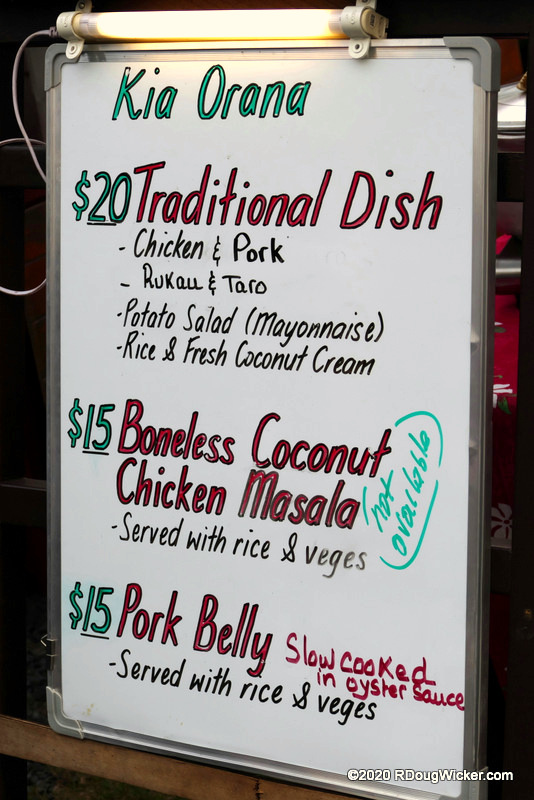 Kia Orana
$20 Traditional Dish
- Chicken & Pork
- Rukau & Taro
- Potato Salad (Mayonnaise)
- Rice & Fresh Coconut Cream
$15 Boneless Coconut
Chicken Masala
not
available
- Served with rice & veges
$15 Pork Belly
Slow cooked
in oyster sauce
- Served with rice & veges
©2020 RDougWicker.com